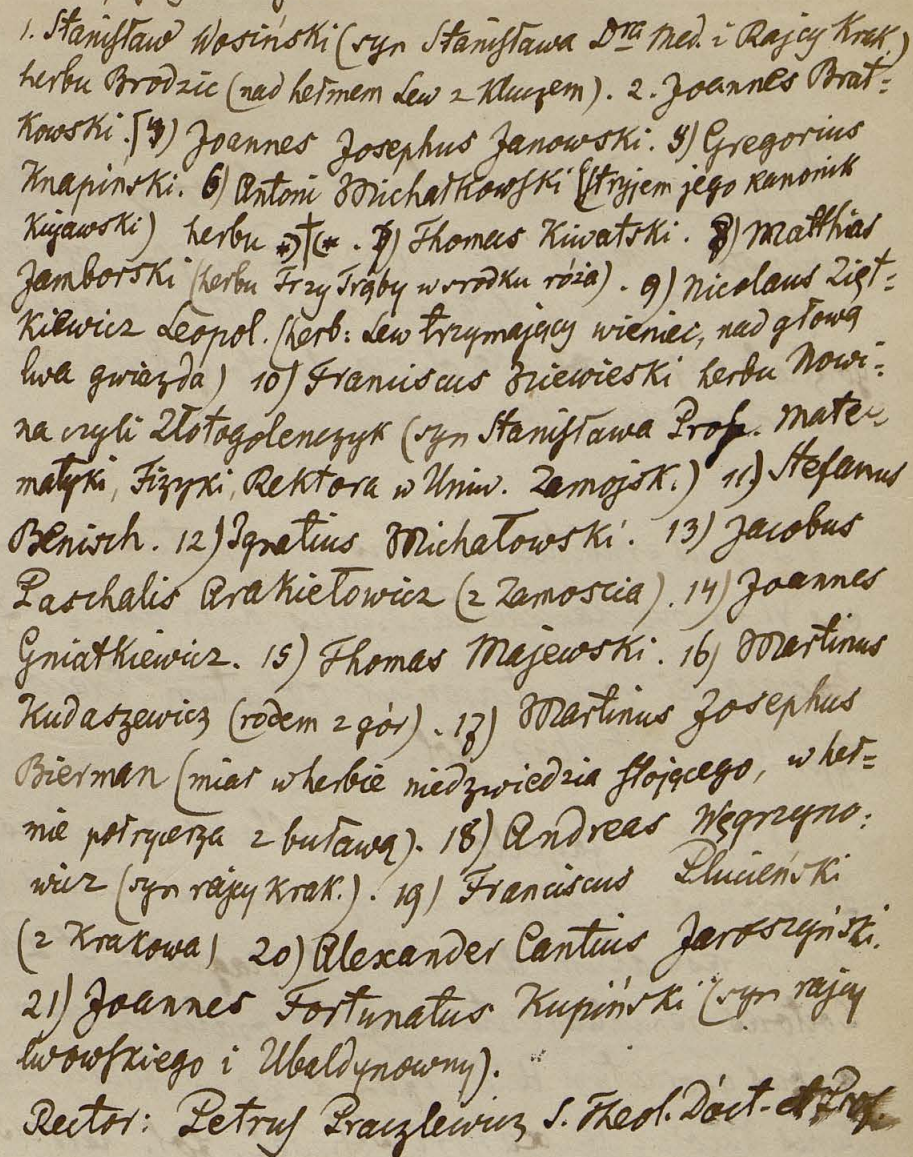 1. Stanisław Wosiński (syn Stanisława Dra Med. i Rajcy Krak.)
herbu Brodzic (nad hełmem Lew z Kluczem). 2. Joannes Brat-
kowski. [4) Joannes Josephus Janowski. 5) Gregorius
Knapinski. 6) Antoni Michałkowski (stryjem jego kanonik
Kujawski) herbu . 7) Thomas Kiwatski. 8) Matthias
Jamborski (herbu Trzy Trąby w srodku róża). 9) Nicolaus Zięt-
kiewicz Leopol. (herb: Lew trzymający wieniec, nad głową
lwa gwiazda) 10) Franciscus Niewieski herbu Nowi-
na czyli Złotogolenczyk (syn Stanisława Prof. Mate-
matyki, Fizyki, Rektora w Uniw. Zamojsk.) 11) Stefanus
Benisch. 12) Ignatius Michałowski. 13) Jacobus
Paschalis Arakiełowicz (z Zamoscia). 14) Joannes
Gniatkiewicz. 15) Thomas Majewski. 16) Martinus
Kudaszewicz (rodem z gór). 17) Martinus Josephus
Bierman (miał w herbie niedzwiedzia stojącego, w heł-
mie półrycerza z buławą). 18) Andreas Węgrzyno-
wicz (syn rajcy Krak.). 19) Franciscus Plucieński
(z Krakowa) 20) Alexander Cantius Jaroszyński.
21) Joannes Fortunatus Kupiński (syn rajcy
lwowskiego i Ubaldynowny).
Rector: Petrus Praczlewicz S. Theol. Doct. et Prof.